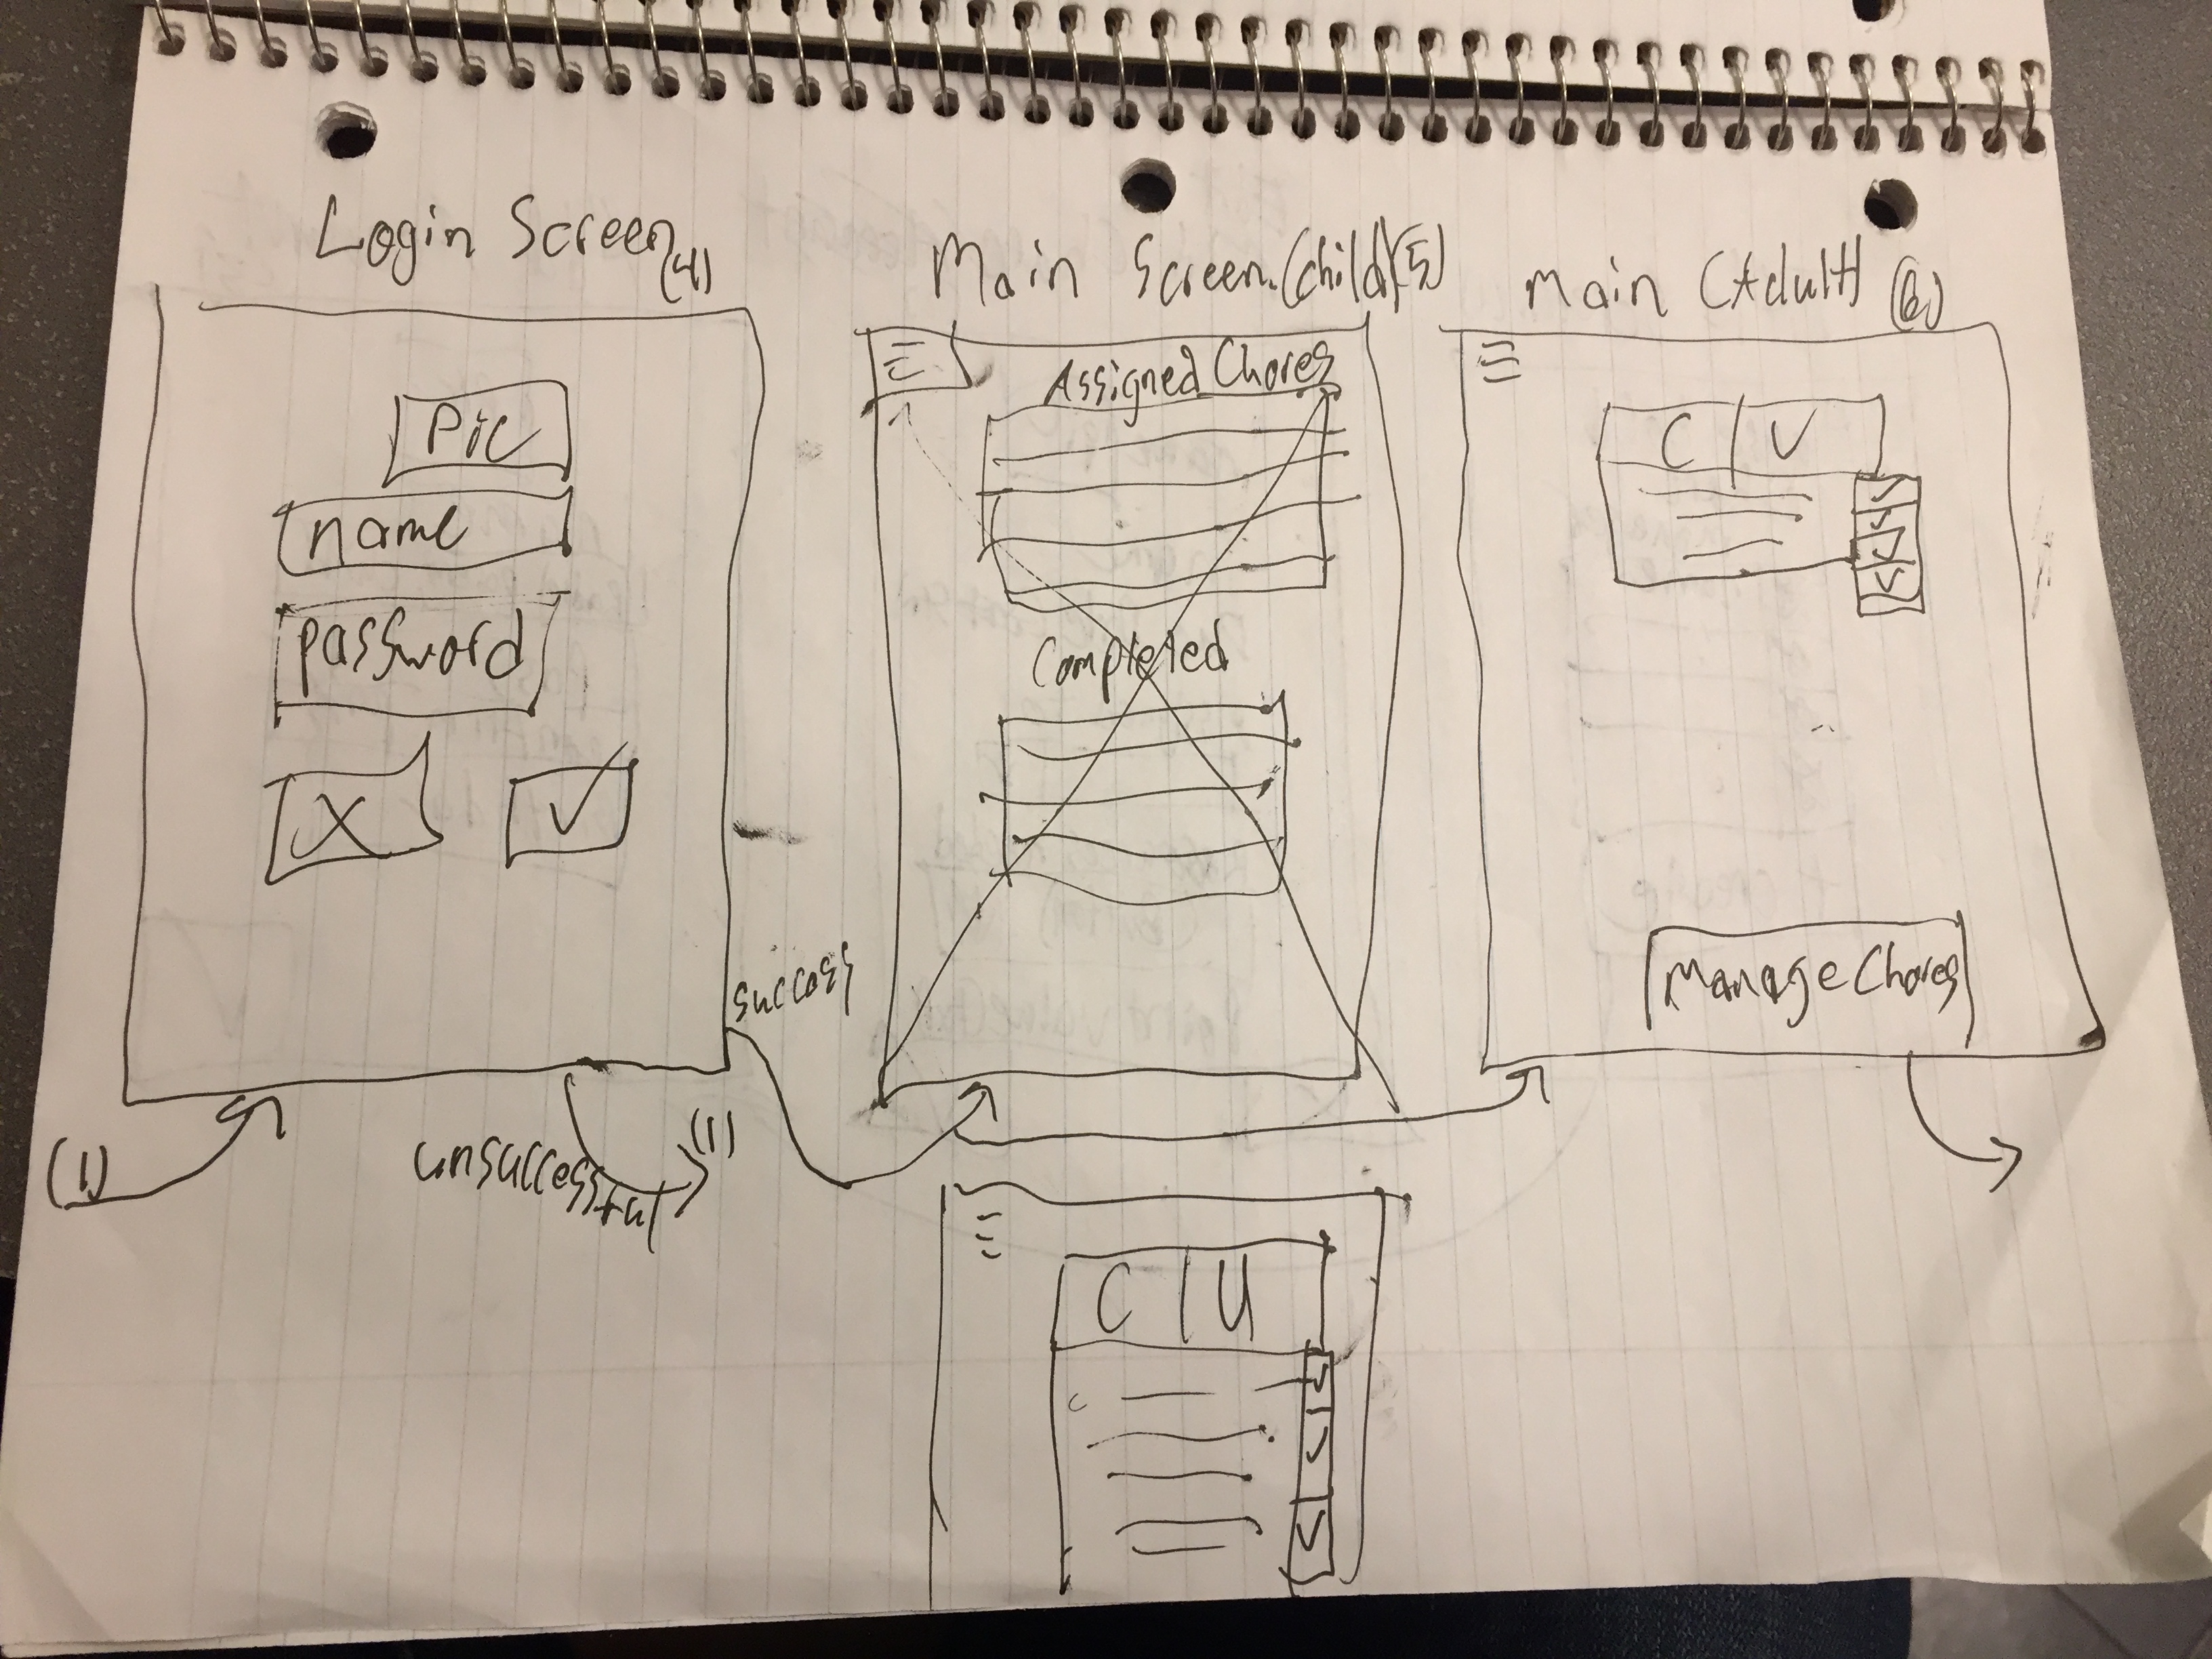 Login Screen (4)
Pic
name
password
X
(1)
unsuccessful
(1)
success
Main Screen (child) (5)
Assigned Chores
Completed
C | U
main (Adult) (6)
C | U
Manage Chores